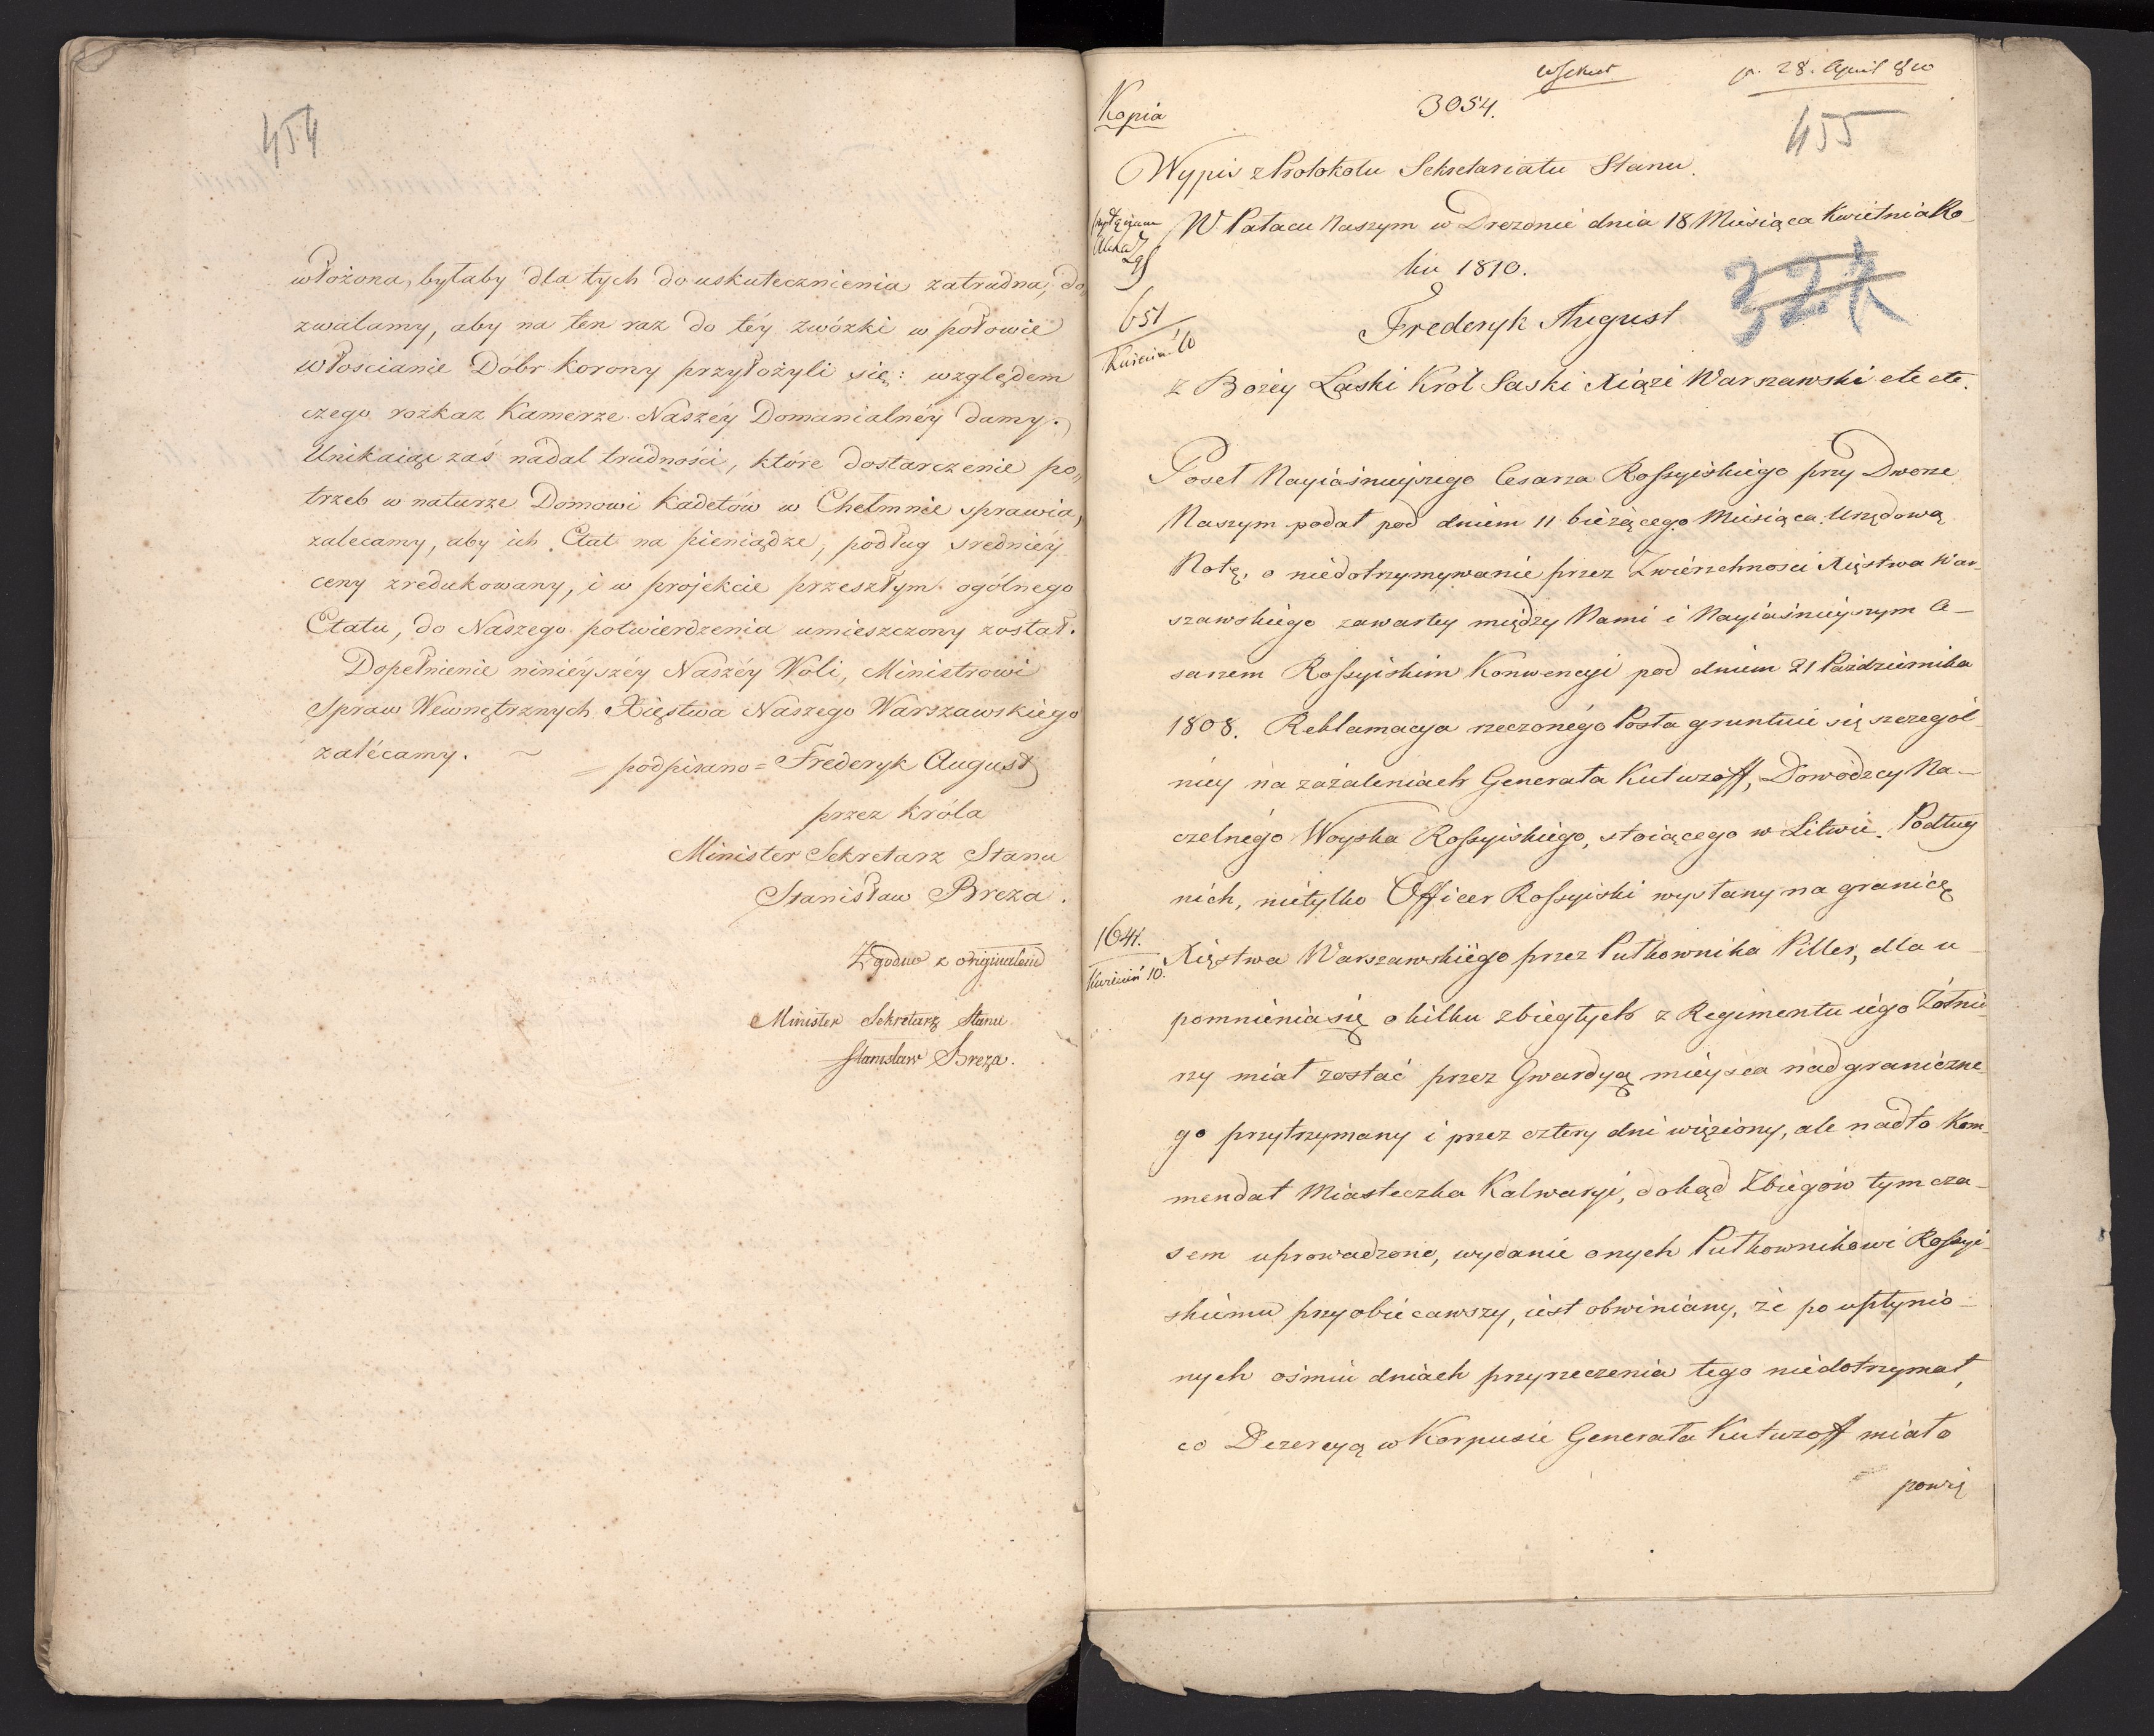 454
włożona, byłaby dla tych do uskutecznienia zatrudna, do„
zwalamy, aby na ten raz do téy zwózki w połowie
włoscianie Dóbr Korony przyłożyli się: względem
czego rozkaz Kamerze Naszéy Domanialnéy damy.
Unikaiąc zaś nadal trudności, które dostarczenie po„
trzeb w naturze Domowi Kadetów w Chełmnie sprawia,
zalecamy, aby ich Etat na pieniądze, podług sredniéy
ceny zredukowany, i w projekcie przeszłym ogólnego
Etatu, do Naszego potwierdzenia umieszczony został.
Dopełnienie ninieyszéy Naszéy Woli, Ministrowi
Spraw Wewnętrznych Xięstwa Naszego Warszawskiego
zalécamy. ~
podpisano = Frederyk August
przez Króla
Minister Sekretarz Stanu
Stanisław Breza.
Zgodno z originałem
Minister Sekretarz Stanu
Stanisław Breza.
28. April 810
Kopia
3054.
455
Wypis z Protokołu Sekretariatu Stanu.
W Pałacu Naszym w Dreznie dnia 18 Miesiąca Kwietnia Ro-
ku 1810.
324
651
Kwiecień 10
Frederyk August
z Bożey Łaski Król Saski Xiąże Warszawski etc etc.
Poseł Nayiaśnieyszego Cesarza Rossyiskiego przy Dworze
Naszym podał pod dniem 11 bieżącego Miesiąca Urzędową
Notę, o niedotrzymywanie przez Zwierzchnosci Xięstwa War-
szawskiego zawartey między Nami i Nayiaśnieyszym Ce-
sarzem Rossyiskim Konwencyi pod dniem 21 Października
1808. Reklamacya rzeczonego Posła gruntuie się szczegól-
niey na zażaleniach Generała Kutuzoff, Dowódzcy Na-
czelnego Woyska Rossyiskiego, stoiącego w Litwie. Podług
nich, nietylko Officer Rossyiski wysłany na granicę
1641.
Kwiecień 10.
Xięstwa Warszawskiego przez Pułkownika Piller, dla u-
pomnienia się o kilku zbiegłych z Regimentu iego Żołnie-
rzy miał zostać przez Gwardyą mieysca nadgraniczne-
go przytrzymany i przez cztery dni więziony, ale nadto Kom-
mendat Miasteczka Kalwaryi, dokąd Zbiegów tymcza-
sem uprowadzono, wydanie onych Pułkownikowi Rossyi-
skiemu przyobiecawszy, iest obwiniany, że po upłynio-
nych ośmiu dniach przyrzeczenia tego niedotrzymał,
co Dezercyą w Korpusie Generała Kutuzoff miało
powię